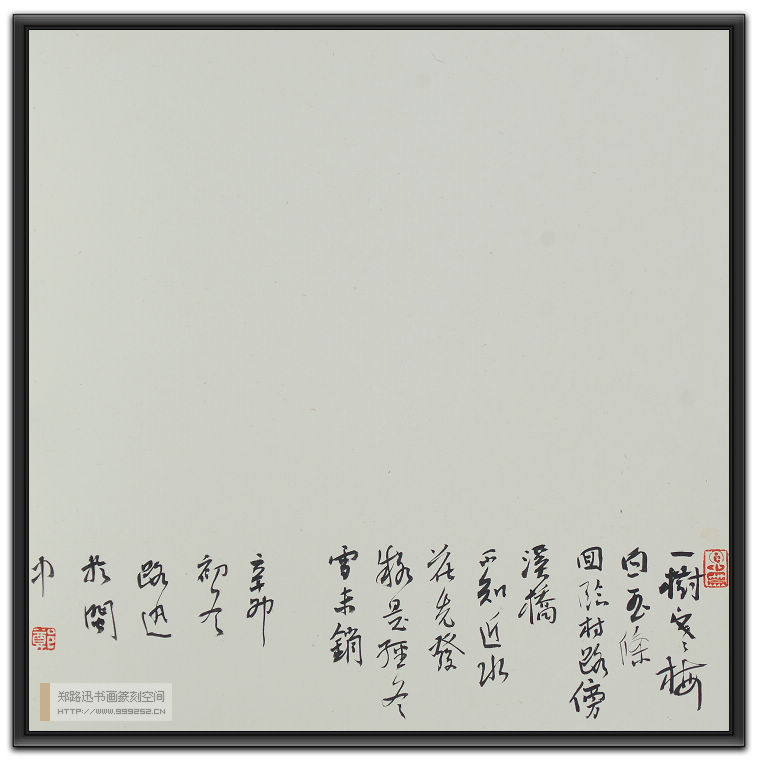 一樹寒梅
白玉條
回臨村路傍
溪橋
不知近水
花先發
疑是經冬
雪未銷
辛卯
初冬
路迅
於閩
中
鄭
郑路迅书画篆刻空间
HTTP://WWW.999252.CN